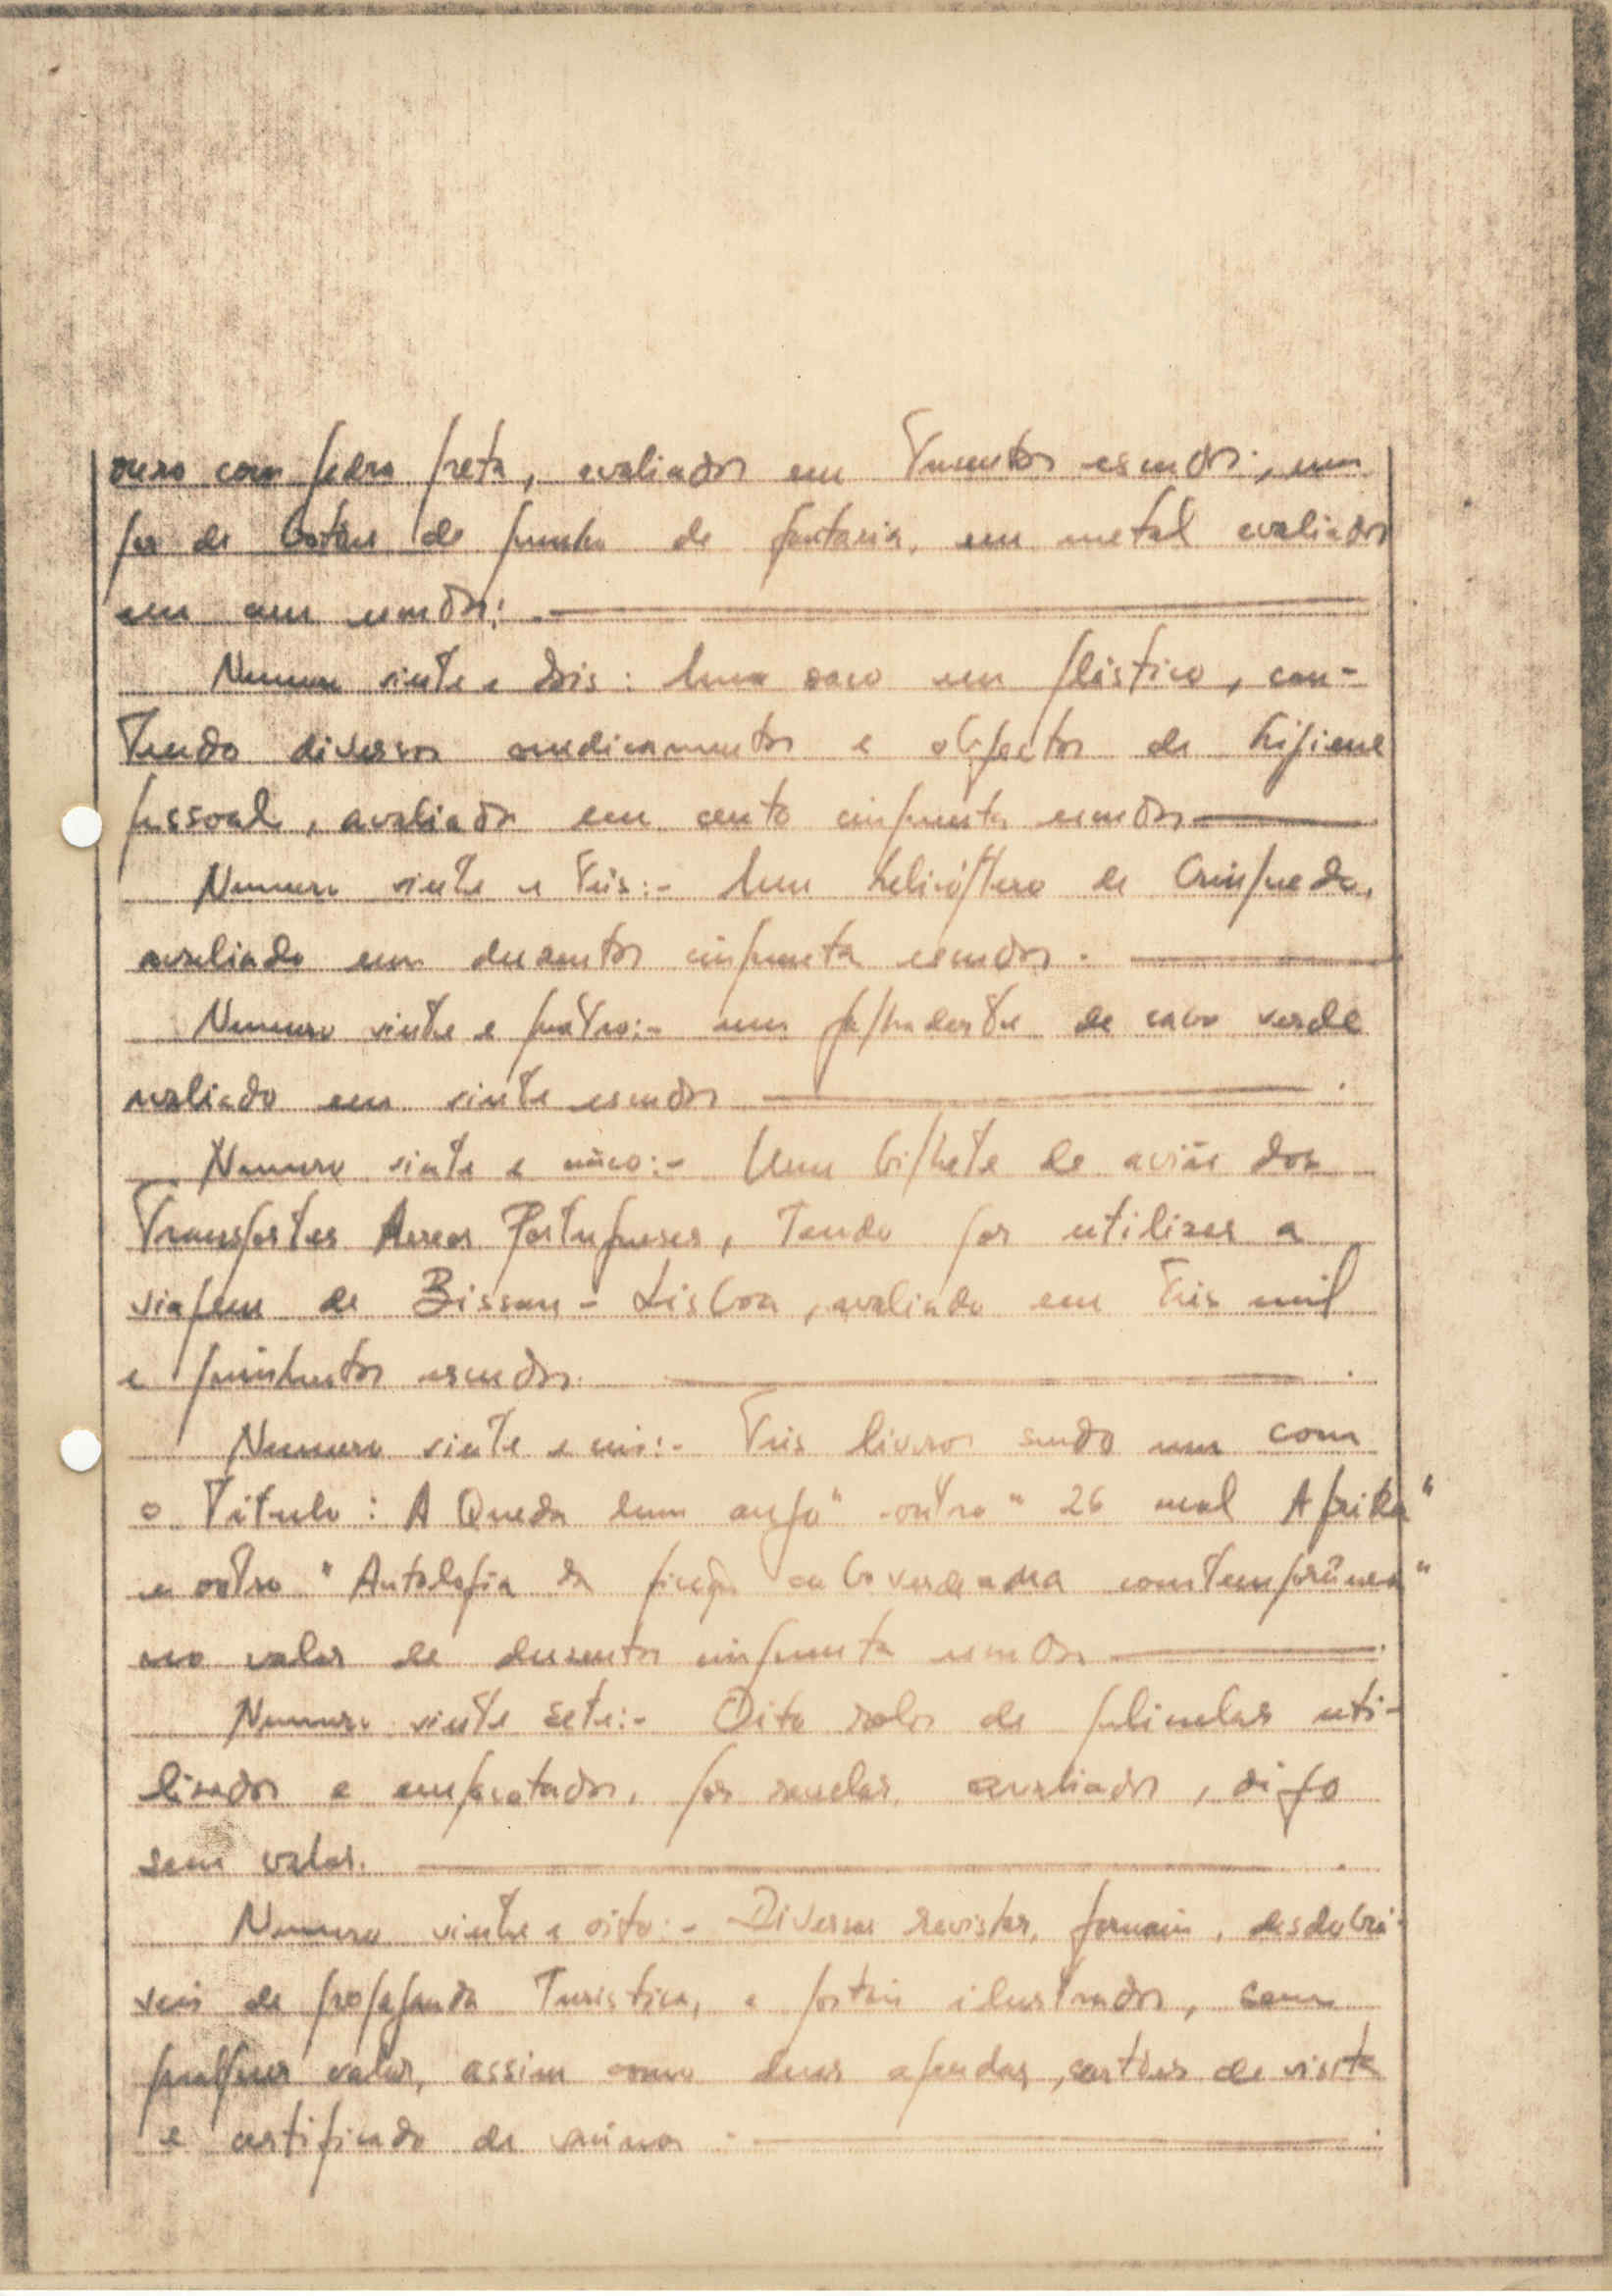 ouro com pedra preta, avaliados em Trezentos escudos; um
par de botões de punho de fantasia, em metal avaliados
em cem escudos;
Numero vinte e dois: Um saco em plástico, con-
Tendo diversos medicamentos e objectos de higiene
pessoal, avaliados em cento cinquenta escudos
Numero vinte e Três:- Um helicóptero de brinquedo,
avaliado em duzentos cinquenta escudos.
Numero vinte e quatro:- um de cabo verde
avaliado em vinte escudos
Numero vinte e cinco:- Um bilhete de avião dos
Transportes Aereos Portugueses, Tendo por utilizar a
viagem de Bissau - Lisboa, avaliado em Três mil
e quinhentos escudos.
Numero vinte e seis:- Três livros sendo um com
o Título: A Queda dum anjo" outro " 26 mal Afrika"
e outro " Antologia da ficção caboverdeana contemporânea"
no valor de duzentos cinquenta escudos
Numero vinte sete:- Oito rolos de peliculas uti-
lizados e empacotados, por revelar, avaliados, digo
sem valor.
Numero vinte e oito:- Diversas revistas, jornais, desdobrá-
veis de propaganda Turistica, e postais ilustrados, sem
qualquer valor, assim como duas agendas, cartões de visita
e certificado de vacinas